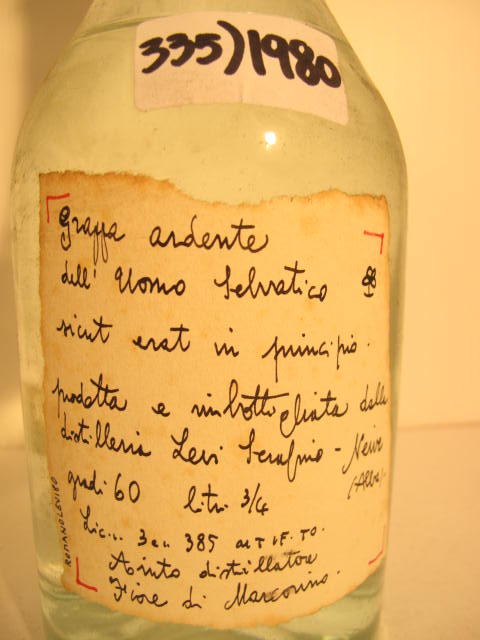 335)1980
Grappa ardente
dell' Uomo Selvatico
sicut erat in principio.
prodotta e imbottigliata dalla
distilleria Levi Serafino - Neive
(Alba)
gradi 60 litri 3/4
Lic... 385 UTIF. TO.
Aiuto distillatore
Fiore di Marcorino.
ROMANO LEVI 80